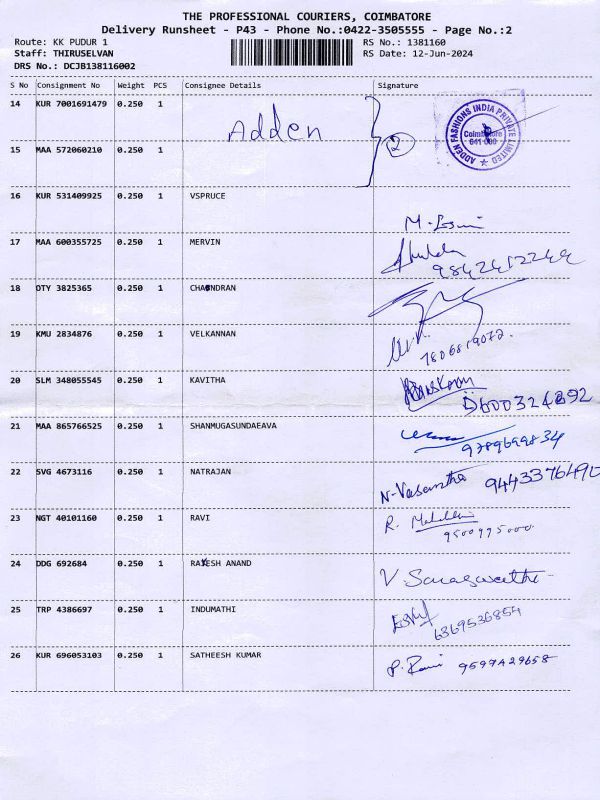 THE PROFESSIONAL COURIERS, COIMBATORE
Delivery Runsheet - P43 - Phone No.:0422-3505555 - Page No.:2
Route: KK PUDUR 1 RS No.: 1381160
Staff: THIRUSELVAN RS Date: 12-Jun-2024
DRS No.: DCJB138116002
S No Consignment No Weight PCS Consignee Details Signature
14 KUR 7001691479 0.250 1
Adden 2
ADDEN FASHIONS INDIA PRIVATE LIMITED
Coimbatore
641 030
15 MAA 572060210 0.250 1
16 KUR 531409925 0.250 1 VSPRUCE
17 MAA 600355725 0.250 1 MERVIN
18 OTY 3825365 0.250 1 CHANDRAN
19 KMU 2834876 0.250 1 VELKANNAN
7806819072.
20 SLM 348055545 0.250 1 KAVITHA
21 MAA 865766525 0.250 1 SHANMUGASUNDAEAVA
9789699834
22 SVG 4673116 0.250 1 NATRAJAN N-Vasantha
23 NGT 40101160 0.250 1 RAVI R.
9500995000.
24 DDG 692684 0.250 1 RAKESH ANAND V. Saraswathi
25 TRP 4386697 0.250 1 INDUMATHI
6369536854
26 KUR 696053103 0.250 1 SATHEESH KUMAR P. Rani 9597429658